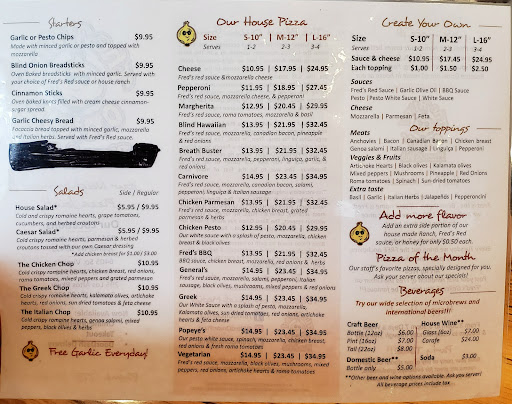 Starters
Garlic or Pesto Chips $9.95
Made with minced garlic or pesto and topped with
mozzarella
Blind Onion Breadsticks $9.95
Oven Baked breadsticks with minced garlic. Served with
your choice of Fred's Red sauce or house ranch
Cinnamon Sticks $9.95
Oven baked korns filled with cream cheese cinnamon-
sugar spread.
Garlic Cheesy Bread $9.95
Focaccia bread topped with minced garlic, mozzarella
and Italian herbs. Served with Fred's Red sauce.
Salads Side / Regular
House Salad* $5.95 / $9.95
Cold and crispy romaine hearts, grape tomatoes,
cucumbers, and herbed croutons
Caesar Salad* $5.95 / $9.95
Cold crispy romaine hearts, parmesan & herbed
croutons tossed with our own Caesar dressing
*Add chicken breast for $1.00 / $3.00
The Chicken Chop $10.95
Cold crispy romaine hearts, chicken breast, red onions,
roma tomatoes, mixed peppers and grated parmesan
The Greek Chop $10.95
Cold crispy romaine hearts, kalamata olives, artichoke
hearts, red onions, sun dried tomatoes & feta cheese
The Italian Chop $10.95
Cold crispy romaine hearts, genoa salami, mixed
peppers, black olives & herbs
Free Garlic Everyday!
Our House Pizza
Size S-10" | M-12" | L-16"
Serves 1-2 2-3 3-4
Cheese $10.95 | $17.95 | $24.95
Fred's red sauce & mozzarella cheese
Pepperoni $11.95 | $18.95 | $27.45
Fred's red sauce, mozzarella cheese, & pepperoni
Margherita $12.95 | $20.45 | $29.95
Fred's red sauce, roma tomatoes, mozzarella & basil
Blind Hawaiian $13.95 | $21.95 | $32.45
Fred's red sauce, mozzarella, canadian bacon, pineapple
& red onions
Breath Buster $13.95 | $21.95 | $32.45
Fred's red sauce, mozzarella, pepperoni, linguiça, garlic, &
red onions
Carnivore $14.95 | $23.45 | $34.95
Fred's red sauce, mozzarella, canadian bacon, salami,
pepperoni, linguiça & Italian sausage
Chicken Parmesan $13.95 | $21.95 | $32.45
Fred's red sauce, mozzarella, chicken breast, grated
parmesan & herbs
Chicken Pesto $12.95 | $20.45 | $29.95
Our White sauce with a splash of pesto, mozzarella, chicken
breast & black olives
Fred's BBQ $13.95 | $21.95 | $32.45
BBQ sauce, chicken breast, mozzarella, red onions & herbs
General's $14.95 | $23.45 | $34.95
Fred's red sauce, mozzarella, salami, pepperoni, Italian
sausage, black olives, mushrooms, mixed peppers & red
onions
Greek $14.95 | $23.45 | $34.95
Our White Sauce with a splash of pesto, mozzarella,
Kalamata olives, sun dried tomatoes, red onions, artichoke
hearts & feta cheese
Popeye's $14.95 | $23.45 | $34.95
Our pesto white sauce, spinach, mozzarella, chicken breast,
red onions & fresh roma tomatoes
Vegetarian $14.95 | $23.45 | $34.95
Fred's red sauce, mozzarella, black olives, mushrooms, mixed
peppers, red onions, artichoke hearts & roma tomatoes
Create Your Own
Size S-10" M-12" L-16"
Serves 1-2 2-3 3-4
Sauce & cheese $10.95 $17.45 $24.95
Each topping $1.00 $1.50 $2.50
Sauces
Fred's Red Sauce | Garlic Olive Oil | BBQ Sauce
Pesto | Pesto White Sauce | White Sauce
Cheese
Mozzarella | Parmesan | Feta
Our toppings
Meats
Anchovies | Bacon | Canadian Bacon | Chicken breast
Genoa salami | Italian sausage | Linguiça | Pepperoni
Veggies & Fruits
Artichoke Hearts | Black olives | Kalamata olives
Mixed peppers | Mushrooms | Pineapple | Red Onions
Roma tomatoes | Spinach | Sun-dried tomatoes
Extra taste
Basil | Garlic | Italian Herbs | Jalapeños | Pepperoncini
Add more flavor
Add an extra side portion of our
house made Ranch, Fred's Red
sauce, or honey for only $0.50 each.
Pizza of the Month
Our staff's favorite pizzas, specially designed for you.
Ask your server about our specials!
Beverages
Try our wide selection of microbrews and
international beers!!!
Craft Beer
Bottle (12oz) $6.00
Pint (16oz) $7.00
Tall (22oz) $8.00
Domestic Beer**
Bottle only $5.00
House Wine**
Glass (6oz) $7.00
Carafe $24.00
Soda $3.00
**Other beer and wine options available. Ask you server!
All beverage prices include tax